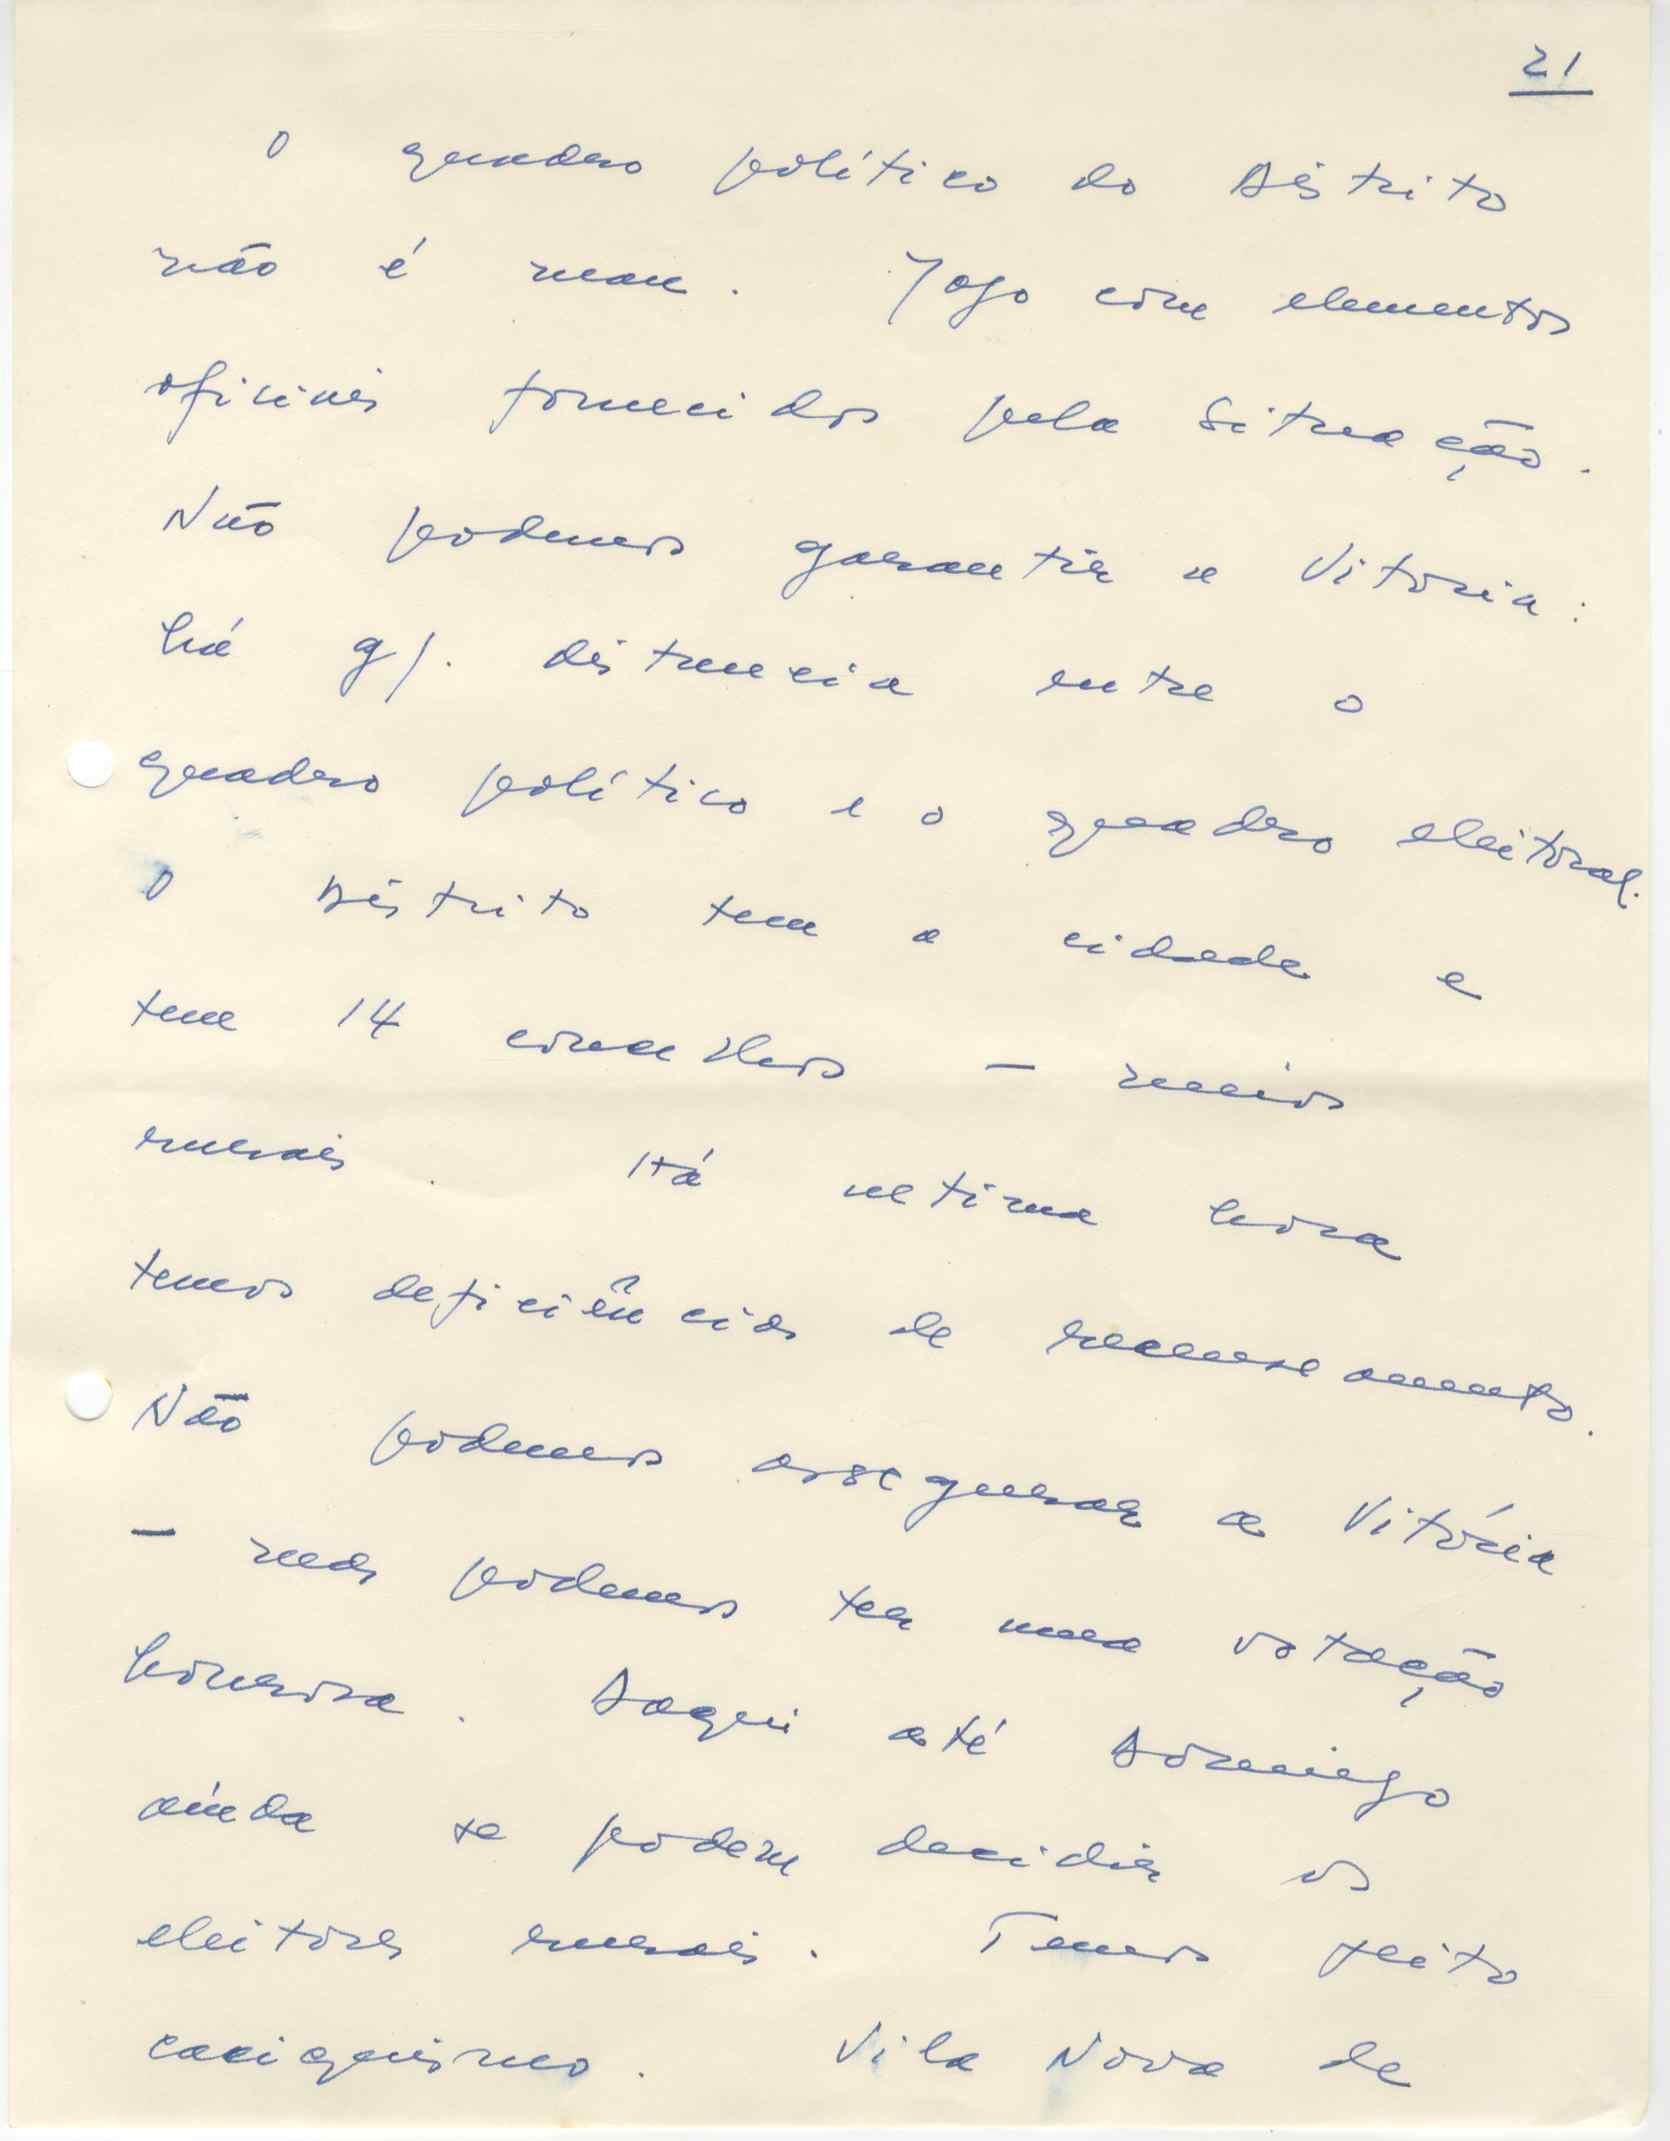 21
O quadro político do Distrito
não é mau. Jogo com elementos
oficiais fornecidos pela Situação.
Não podemos garantir a Vitoria:
há g/. distancia entre o
quadro político e o quadro eleitoral.
O Distrito tem a cidade e
tem 14 concelhos — meios
rurais. Há ultima hora
temos deficiências de recenseamento.
Não podemos assegurar a Vitória
— mas podemos ter uma votação
honrosa. Daqui até Domingo
ainda se podem decidir os
eleitores rurais. Temos feito
caciquismo. Vila Nova de